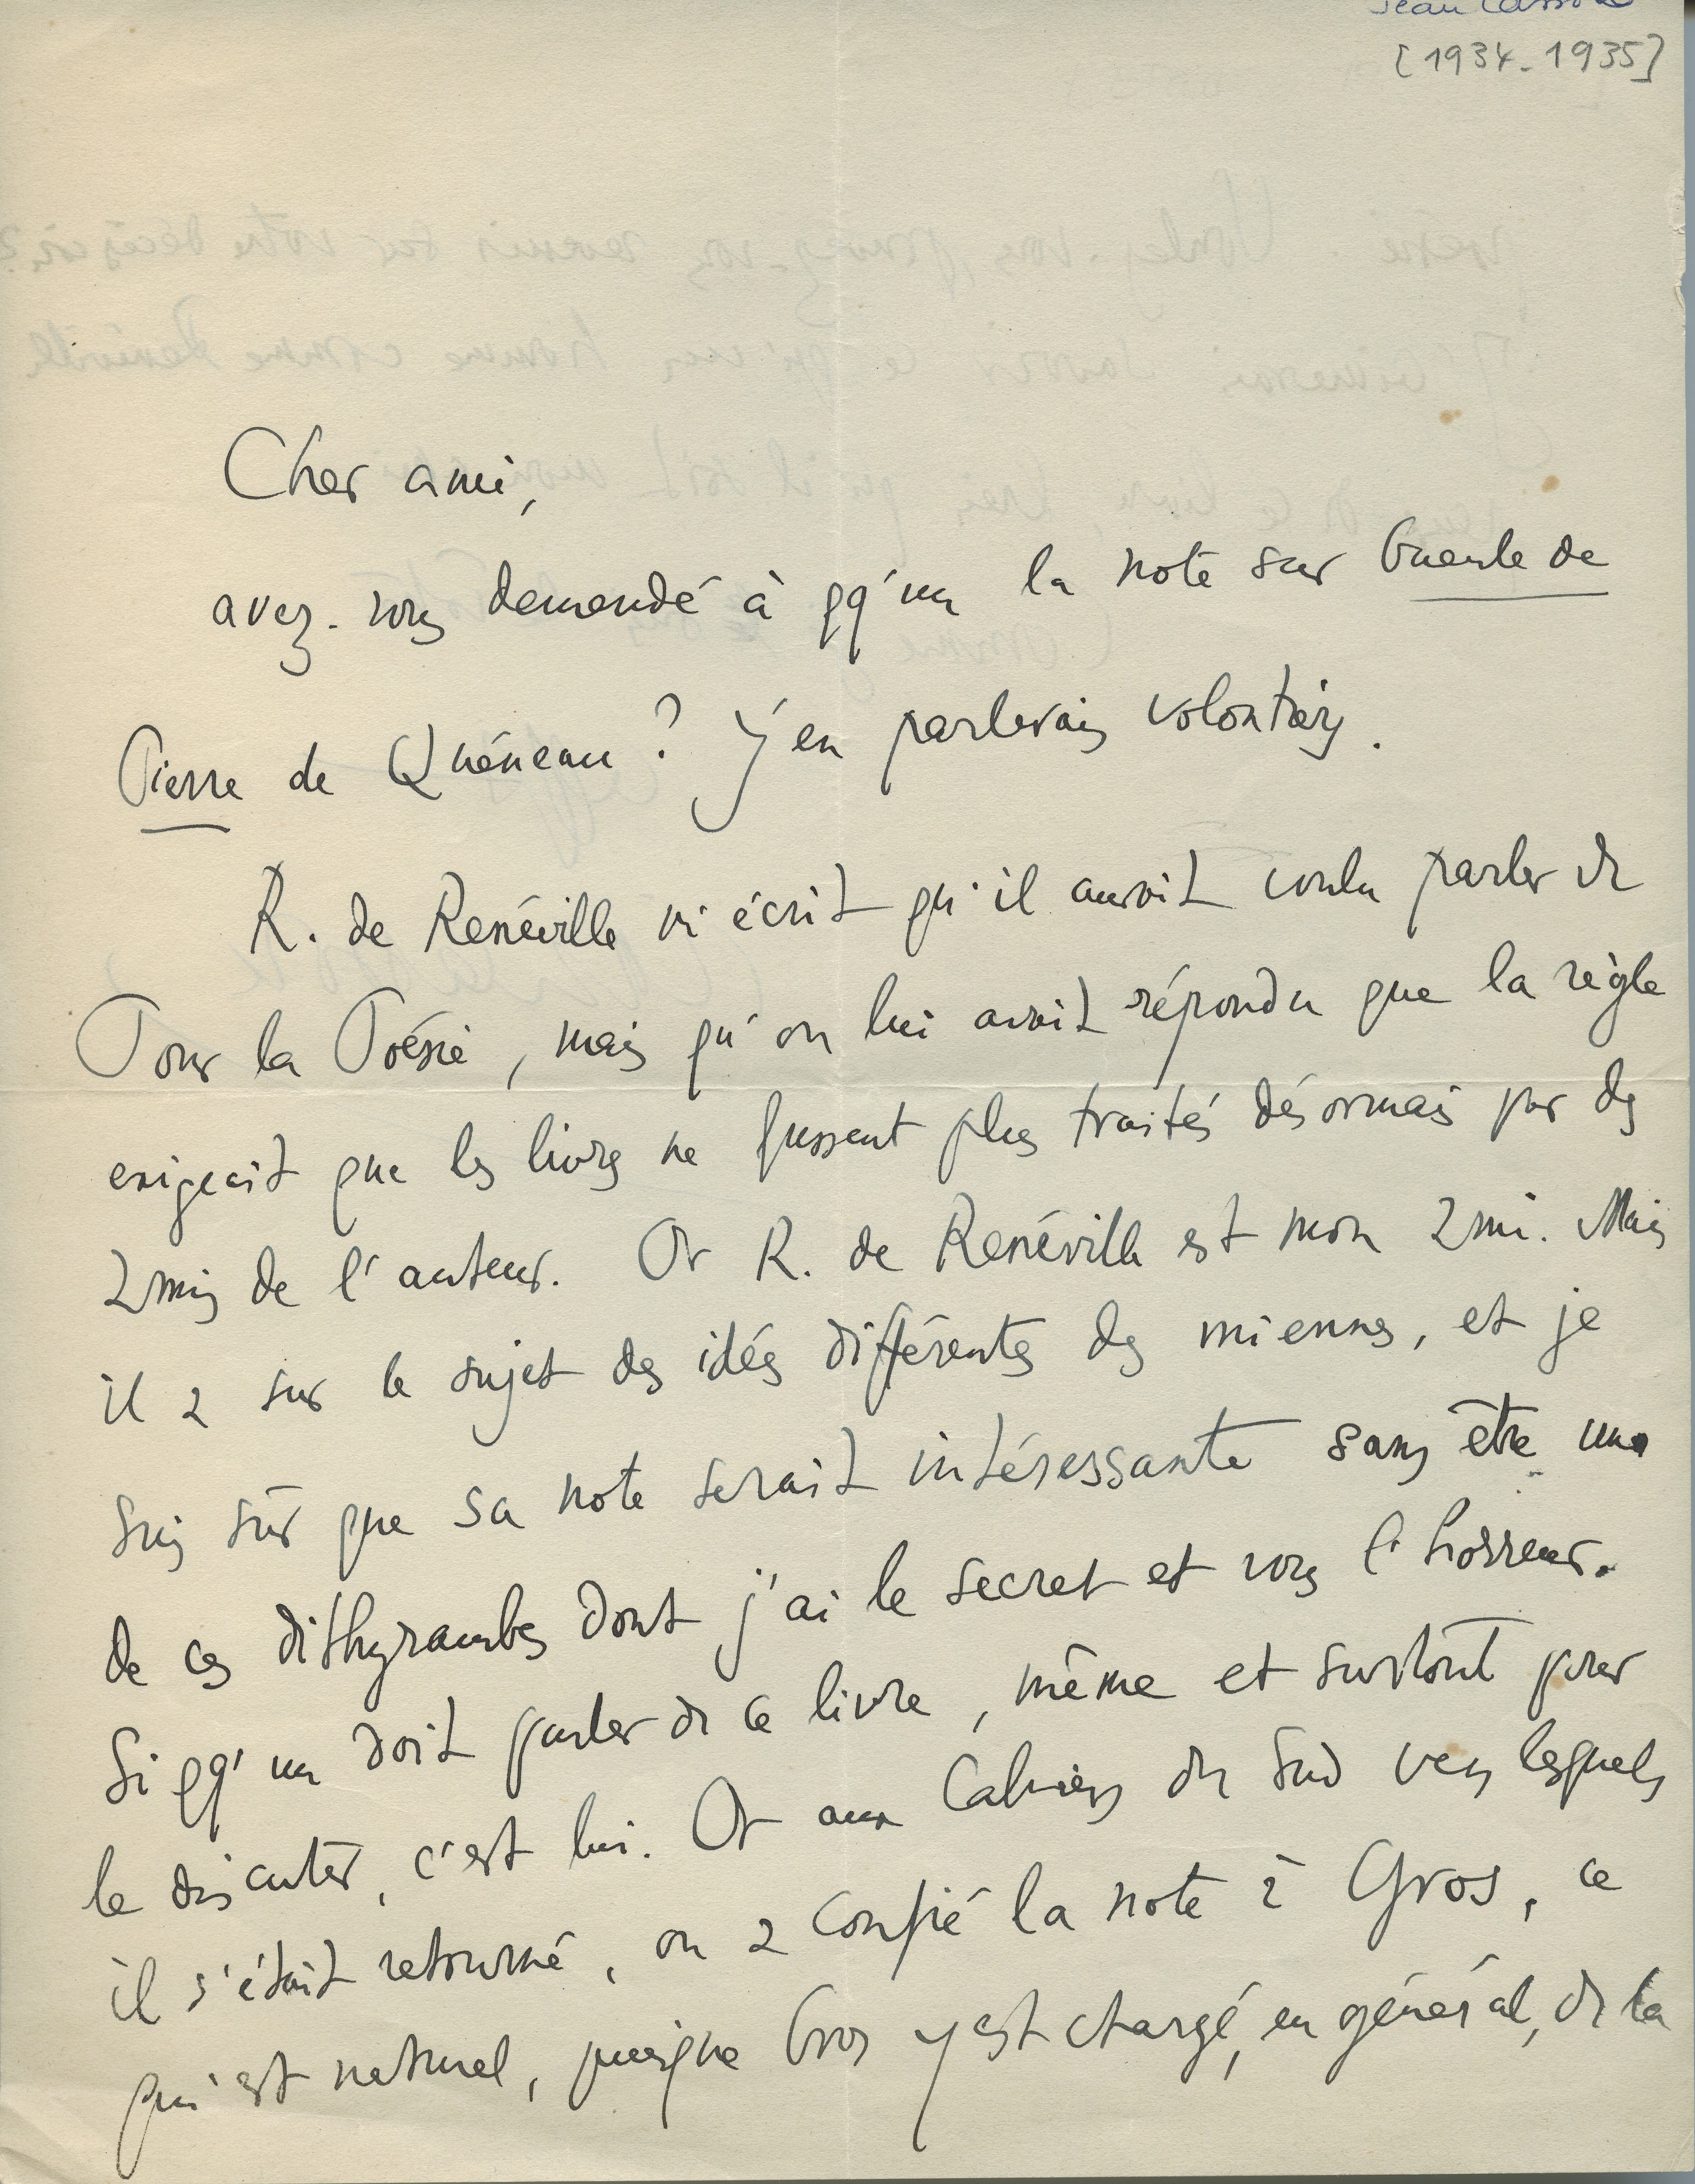 Jean Cassou
[1934-1935]
Cher ami,
avez-vous demandé à qq'un la note sur Gueule de
Pierre de Quéneau ? J'en parlerais volontiers.
R. de Renéville m'écrit qu'il aurait voulu parler de
Pour la Poésie, mais qu'on lui avait répondu que la règle
exigeait que les livres ne fussent plus traités désormais par des
amis de l'auteur. Or R. de Renéville est mon ami. Mais
il a sur le sujet des idées différentes des miennes, et je
suis sûr que sa note serait intéressante sans être un
de ces dithyrambes dont j'ai le secret et vous l'horreur.
Si qq'un doit parler de ce livre, même et surtout pour
le discuter, c'est lui. Or aux Cahiers du Sud vers lesquels
il s'était retourné, on a confié la note à Gros, ce
qui est naturel, puisque Gros y est chargé, en général, de la